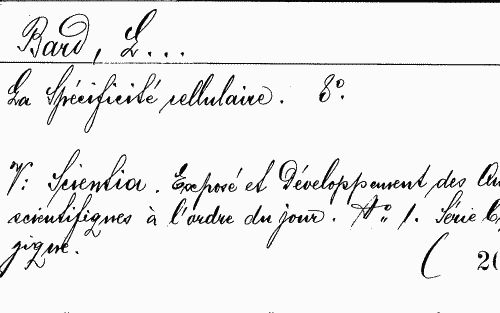 Bard, L...
La Spécificité cellulaire. 8°.
V: Scientia. Exposé et Développement des
scientifiques à l'ordre du jour. N° 1. Série
gique.
( 20